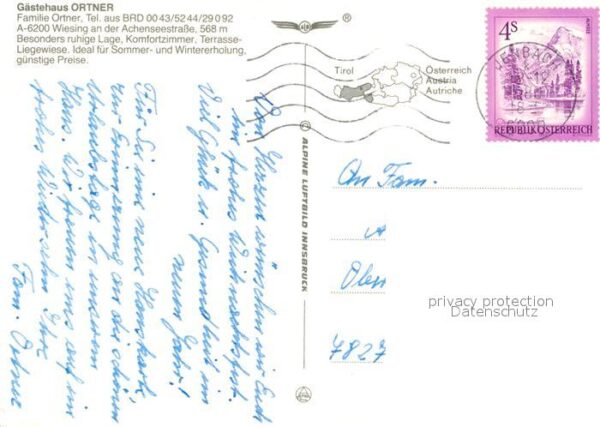 Gästehaus ORTNER
Familie Ortner, Tel. aus BRD 00 43/52 44/29 0 92
A-6200 Wiesing an der Achenseestraße, 568 m
Besonders ruhige Lage, Komfortzimmer, Terrasse-
Liegewiese. Ideal für Sommer- und Wintererholung,
günstige Preise.
4S
REPUBLIK ÖSTERREICH
JENBACH
Tirol
Österreich
Austria
Autriche
ALPINE LUFTBILD INNSBRUCK
Von Herzen wünschen wir Euch
ein frohes Weihnachtsfest.
Viel Glück u. Gesundheit im
neuen Jahr!
Für Sie eine neue Hauskarte,
zur Erinnerung an die schönen
Urlaubstage in unserem
Haus. Wir freuen uns auf ein
frohes Wiedersehn Ihre
Fam. Ortner
An Fam.
Oben
7827
privacy protection
Datenschutz